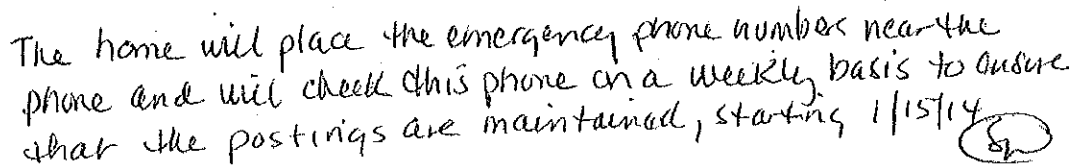 The home will place the emergency phone number near the
phone and will check this phone on a weekly basis to ensure
that the postings are maintained, starting 1/15/14